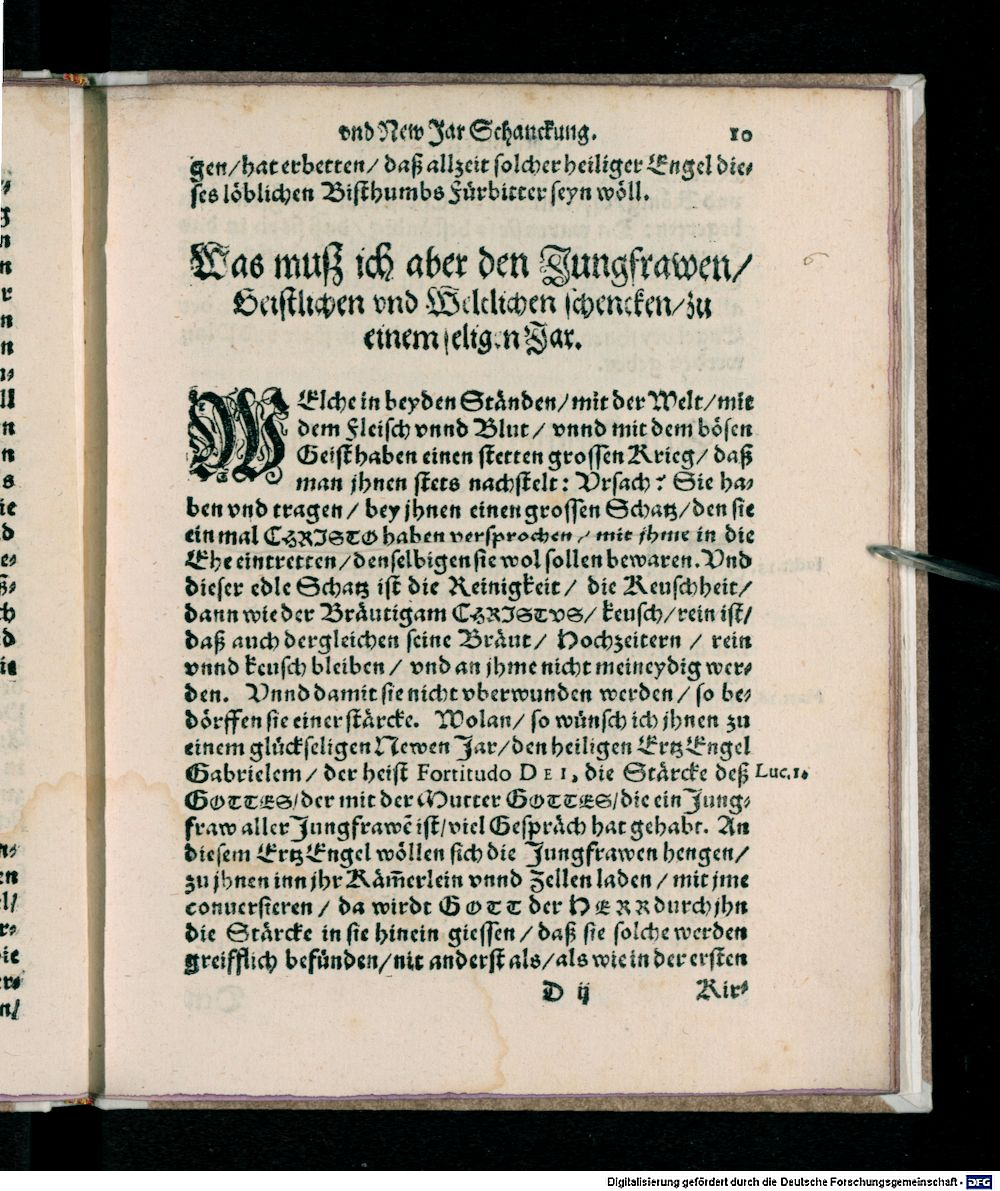 vnd New Jar Schanckung. 10
gen/ hat erbetten/ daß allzeit solcher heiliger Engel die-
ses löblichen Bisthumbs Fürbitter seyn wöll.
Was muß ich aber den Jungfrawen/
Geistlichen vnd Weltlichen schencken/ zu
einem seligen Jar.
WElche in beyden Ständen/ mit der Welt/ mit
dem Fleisch vnnd Blut/ vnnd mit dem bösen
Geist haben einen stetten grossen Krieg/ daß
man jhnen stets nachstelt: Vrsach? Sie ha-
ben vnd tragen/ bey jhnen einen grossen Schatz/ den sie
ein mal CHRISTO haben versprochen/ mit jhme in die
Ehe eintretten/ denselbigen sie wol sollen bewaren. Vnd
dieser edle Schatz ist die Reinigkeit/ die Keuschheit/
dann wie der Bräutigam CHRISTVS/ keusch/ rein ist/
daß auch dergleichen seine Bräut/ Hochzeitern/ rein
vnnd keusch bleiben/ vnd an jhme nicht meineydig wer-
den. Vnnd damit sie nicht vberwunden werden/ so be-
dörffen sie einer stärcke. Wolan/ so wünsch ich jhnen zu
einem glückseligen Newen Jar/ den heiligen ErtzEngel
Gabrielem/ der heist Fortitudo DEI, die Stärcke deß Luc.1.
GOTTES/ der mit der Mutter GOTTES/ die ein Jung-
fraw aller Jungfrawē ist/ viel Gespräch hat gehabt. An
diesem ErtzEngel wöllen sich die Jungfrawen hengen/
zu jhnen inn jhr Kām̄erlein vnnd Zellen laden/ mit jme
conuersieren/ da wirdt GOTT der HERR durch jhn
die Stärcke in sie hinein giessen/ daß sie solche werden
greifflich befünden/ nit anderst als/ als wie in der ersten
D ij Kir-
Digitalisierung gefördert durch die Deutsche Forschungsgemeinschaft - DFG